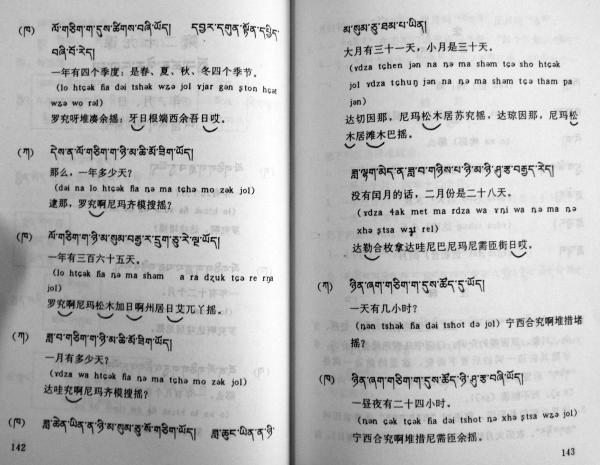 (ཁ) ལོ་གཅིག་ག་དུས་ཚིགས་བཞི་ཡོད། དབྱར་དགུན་སྟོན་དཔྱིད་
བཞི་བོ་རེད།
一年有四个季度：是春、夏、秋、冬四个季节。
(lo htɕək ɦa dəi tshək wʑə jol ɣjar gən ʂton hɕət
wʑə wo rəl)
罗究呀堆凑余摇：牙日根端西余吾日哎。
(ཀ) དེས་ན་ལོ་གཅིག་ག་ཉི་མ་ཆི་མོ་ཟིག་ཡོད།
那么，一年多少天？
(dəi na lo htɕək ɦa ȵə ma tɕhə mo zək jol)
逮那，罗究啊尼玛齐模搜摇？
(ཁ) ལོ་གཅིག་ག་ཉི་མ་སུམ་བརྒྱ་ར་དྲུག་ཅུ་རེ་ལྔ་ཡོད།
一年有三百六十五天。
(lo htɕək ɦa ȵə ma shəm a ra dʐuk tɕə re rŋa
jol)
罗究啊尼玛松木加日啊州居日艾兀丫摇。
(ཀ) ཟླ་བ་གཅིག་ག་ཉི་མ་ཆི་མོ་ཟིག་ཡོད།
一月有多少天？
(ɣdza wa htɕək ɦa ȵə ma tɕhə mo zək jol)
达哇究啊尼玛齐模搜摇？
(ཁ) ཟླ་ཆེན་ཡིན་ན་ཉི་མ་སུམ་ཅུ་སོ་གཅིག་ཡོད། ཟླ་ཆུང་ཡིན་ན་ཉི་
142
མ་སུམ་ཅུ་ཐམ་པ་ཡིན།
大月有三十一天，小月是三十天。
(ɣdza tɕhen jən na ȵə ma shəm tɕə sho htɕək
jol ɣdza tɕhuŋ jən na ȵə ma shəm tɕə tham pa
jən)
达切因那，尼玛松木居苏究摇，达琼因那，尼玛松
木居滩木巴摇。
ཟླ་ལྷག་མེད་ན་ཟླ་བ་གཉིས་པ་ཉི་མ་ཉི་ཤུ་རྩ་བརྒྱད་རེད།
没有闰月的话，二月份是二十八天。
(ɣdza ɬak met ma rdza wa ɣȵi wa ȵə ma ȵə
xhə ʂtsa rel)
达勒合枚拿达哇尼巴尼玛尼需匝街日哎。
(ཀ) ཉིན་ཞག་གཅིག་ག་དུས་ཚོད་དུ་ཡོད།
一天有几小时？
(ȵən tshək ɦa dəi tshot də jol) 宁西合究啊堆措堵
摇？
(ཁ) ཉིན་ཞག་གཅིག་ག་དུས་ཚོད་ཉི་ཤུ་རྩ་བཞི་ཡོད།
一昼夜有二十四小时。
(ȵən ɕək tɕək ɦa dəi tshot ȵə xhə ʂtsa wʑə jol)
宁西合究啊堆措尼需匝余摇。
143